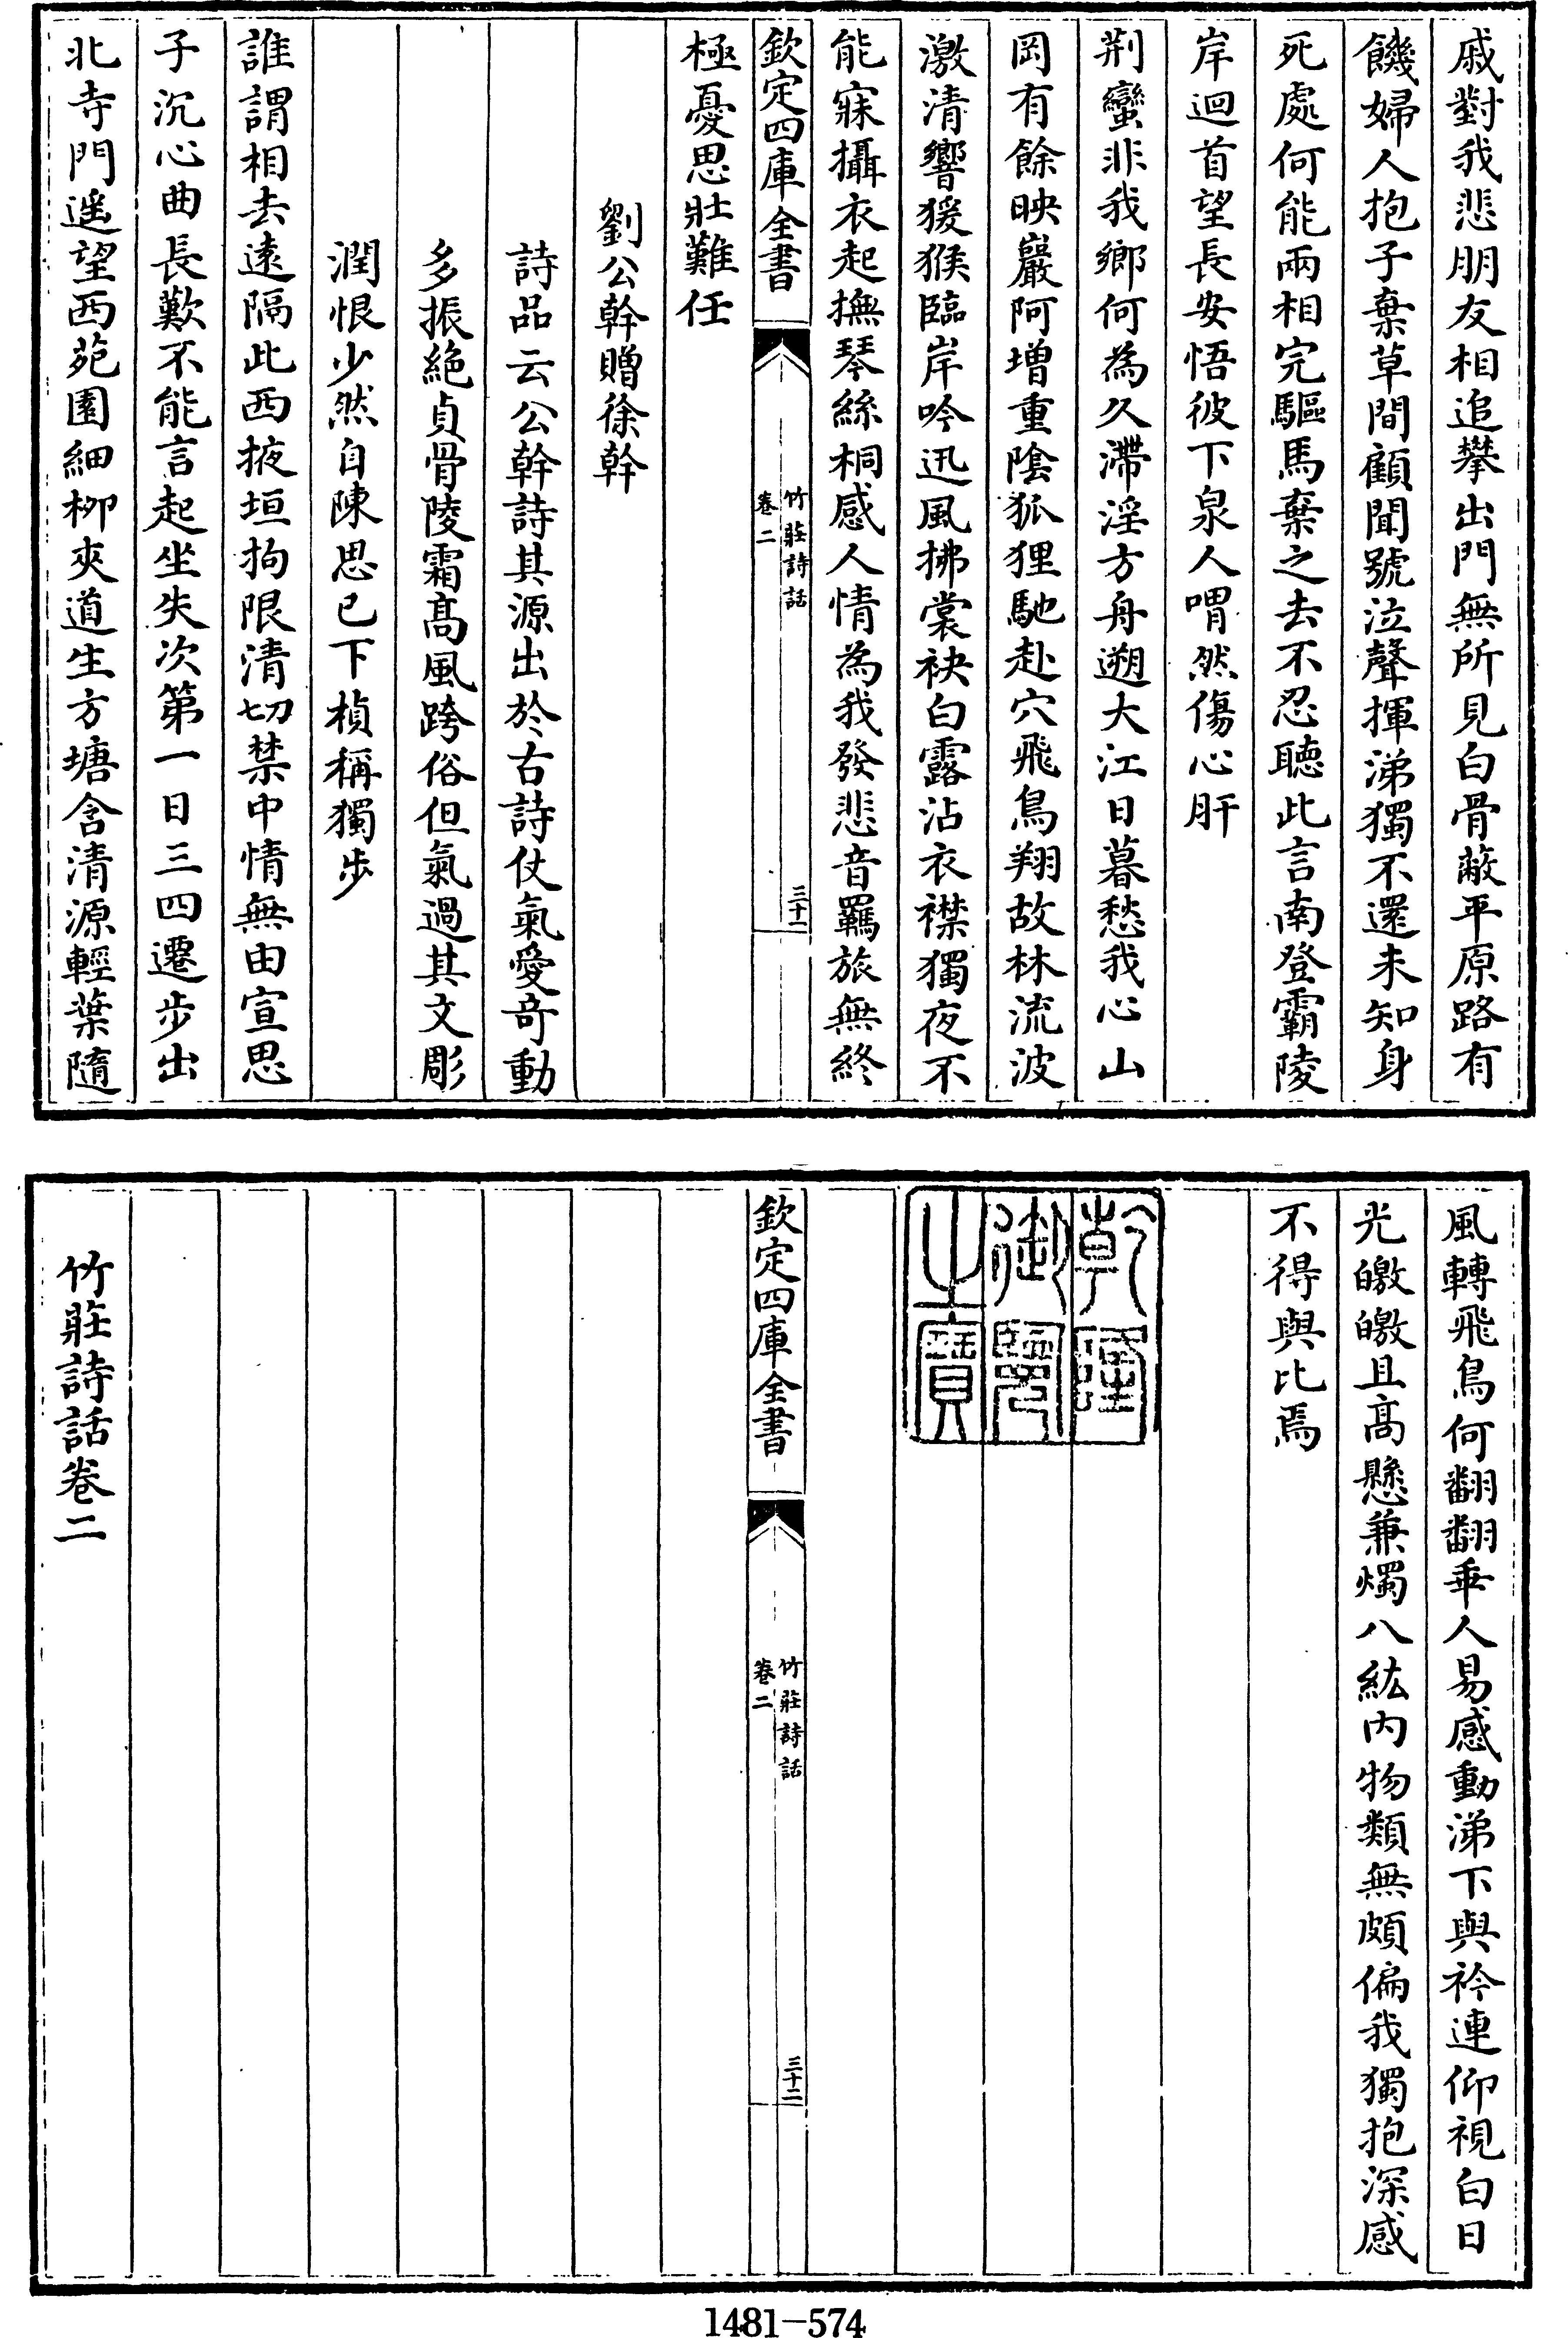 戚對我悲朋友相追攀出門無所見白骨蔽平原路有
饑婦人抱子棄草間顧聞號泣聲揮涕獨不還未知身
死處何能兩相完驅馬棄之去不忍聽此言南登霸陵
岸迴首望長安悟彼下泉人喟然傷心肝
荆蠻非我鄉何為久滯淫方舟遡大江日暮愁我心山
岡有餘映巖阿增重陰狐狸馳赴穴飛鳥翔故林流波
激清響猨猴臨岸吟迅風拂裳袂白露沾衣襟獨夜不
能寐攝衣起撫琴絲桐感人情為我發悲音羈旅無終
欽定四庫全書
竹莊詩話
卷二
三十一
極憂思壯難任
劉公幹贈徐幹
詩品云公幹詩其源出於古詩仗氣愛奇動
多振絶貞骨陵霜髙風跨俗但氣過其文彫
潤恨少然自陳思已下楨稱獨步
誰謂相去遠隔此西掖垣拘限清切禁中情無由宣思
子沉心曲長歎不能言起坐失次第一日三四遷步出
北寺門遥望西苑園細柳夾道生方塘含清源輕葉隨
風轉飛鳥何翻翻乖人易感動涕下與衿連仰視白日
光皦皦且髙懸兼燭八紘内物類無頗偏我獨抱深感
不得與比焉
乾隆
御覽
之寶
欽定四庫全書
竹莊詩話
卷二
三十二
竹莊詩話卷二
1481-574